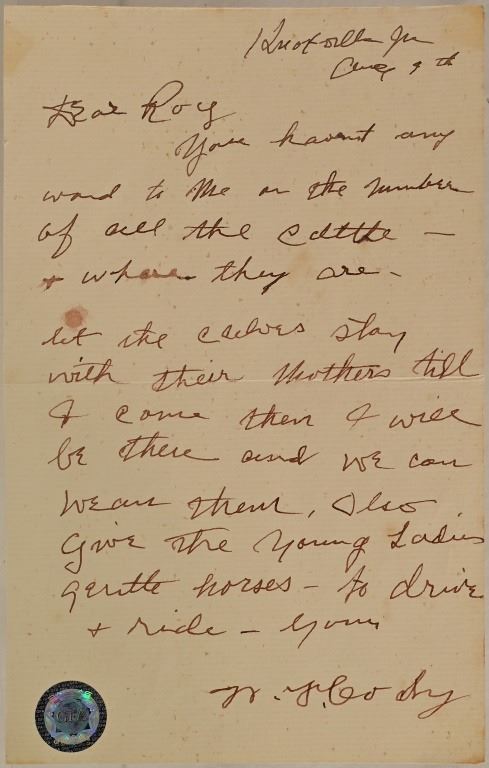 Knoxville Ia
Aug 9th
Dear Roy
You havent any
word to me on the number
of all the cattle —
+ where they are -
let the calves stay
with their Mothers till
I come then I will
be there and we can
wean them, Also
Give the Young Ladies
gentle horses - to drive
+ ride - Yours
W. F. Cody